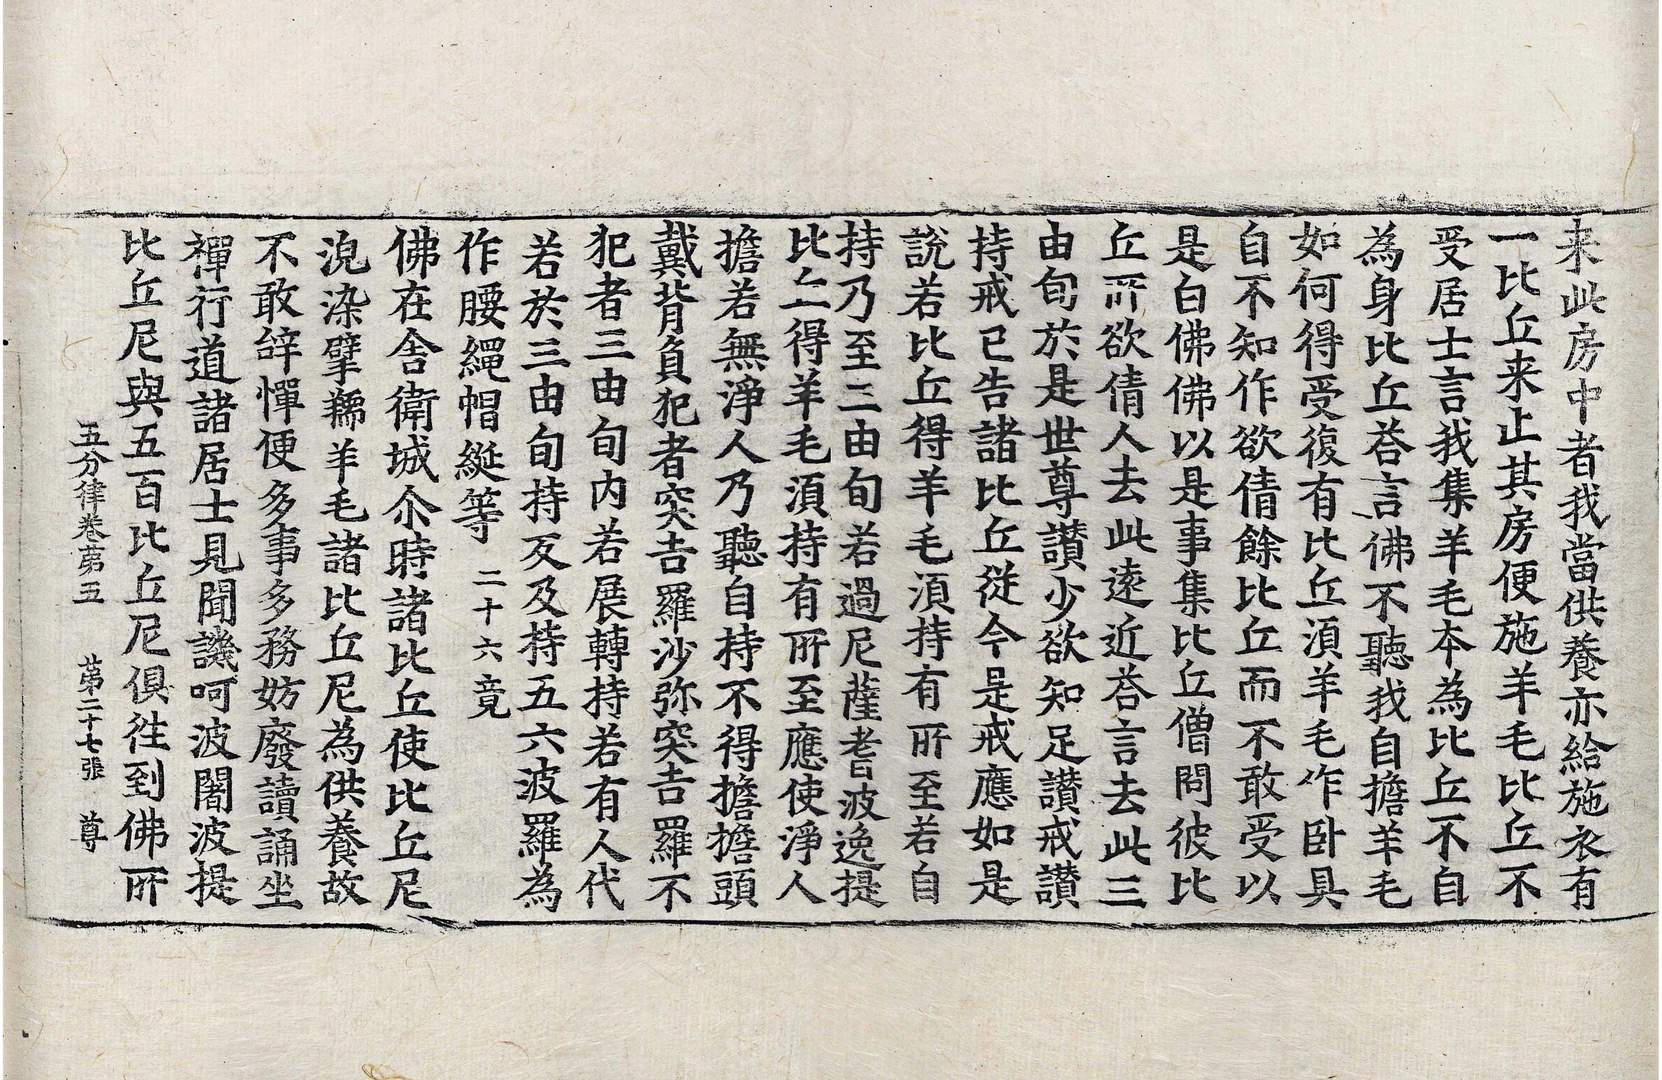 来此房中者我當供養亦給施衣有
一比丘来止其房便施羊毛比丘不
受居士言我集羊毛本為比丘不自
為身比丘荅言佛不聽我自擔羊毛
如何得受復有比丘湏羊毛作卧具
自不知作欲倩餘比丘而不敢受以
是白佛佛以是事集比丘僧問彼比
丘所欲倩人去此逺近荅言去此三
由旬於是世尊讃少欲知足讃戒讃
持戒已告諸比丘従今是戒應如是
說若比丘得羊毛湏持有所至若自
持乃至三由旬若過尼薩耆波逸提
比丘得羊毛湏持有所至應使淨人
擔若無淨人乃聽自持不得擔擔頭
戴背負犯者突吉羅沙弥突吉羅不
犯者三由旬内若展轉持若有人代
若於三由旬持及持五六波羅為
作腰繩帽綖等 二十六竟
佛在舍衛城尒時諸比丘使比丘尼
浣染擘羺羊毛諸比丘尼為供養故
不敢辝憚便多事多務妨廢讀誦坐
禪行道諸居士見聞譏呵波闍波提
比丘尼與五百比丘尼俱往到佛所
五分律卷苐五 苐二十七張 尊